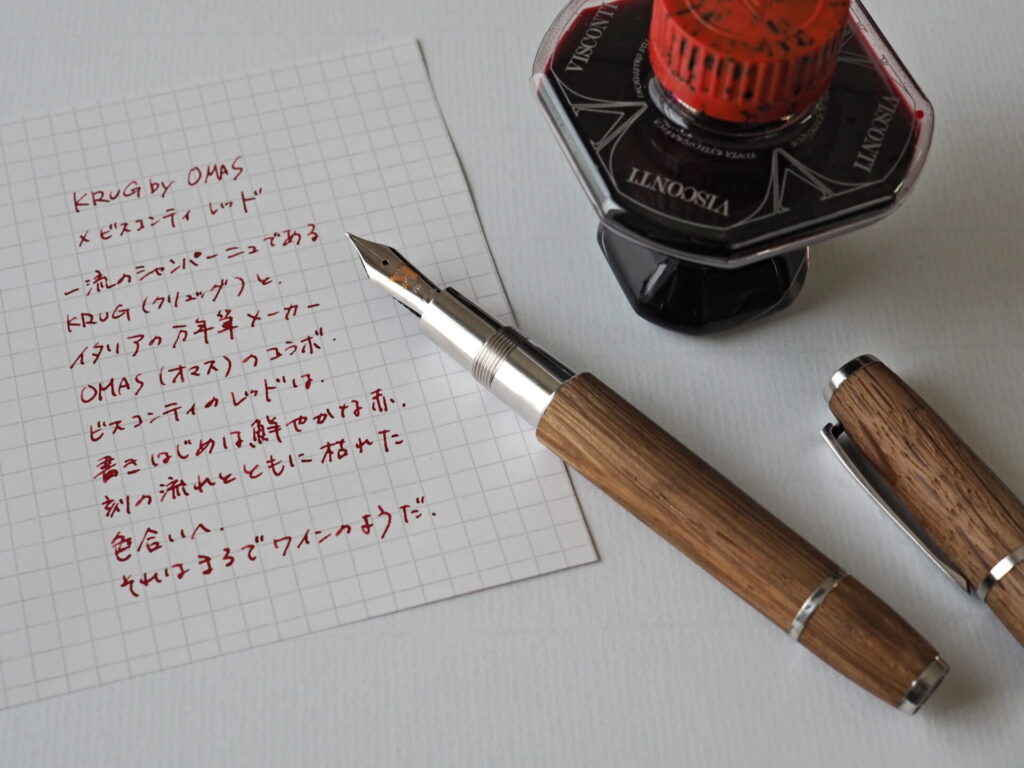 KRUG by OMAS
× ビスコンティ レッド
一流のシャンパーニュである
KRUG (クリュッグ) と、
イタリアの万年筆メーカー
OMAS (オマス) のコラボ.
ビスコンティのレッドは、
書きはじめは鮮やかな赤.
刻の流れとともに枯れた
色合いへ.
それはまるでワインのようだ.
VISCONTI
VISCONTI
VISCONTI